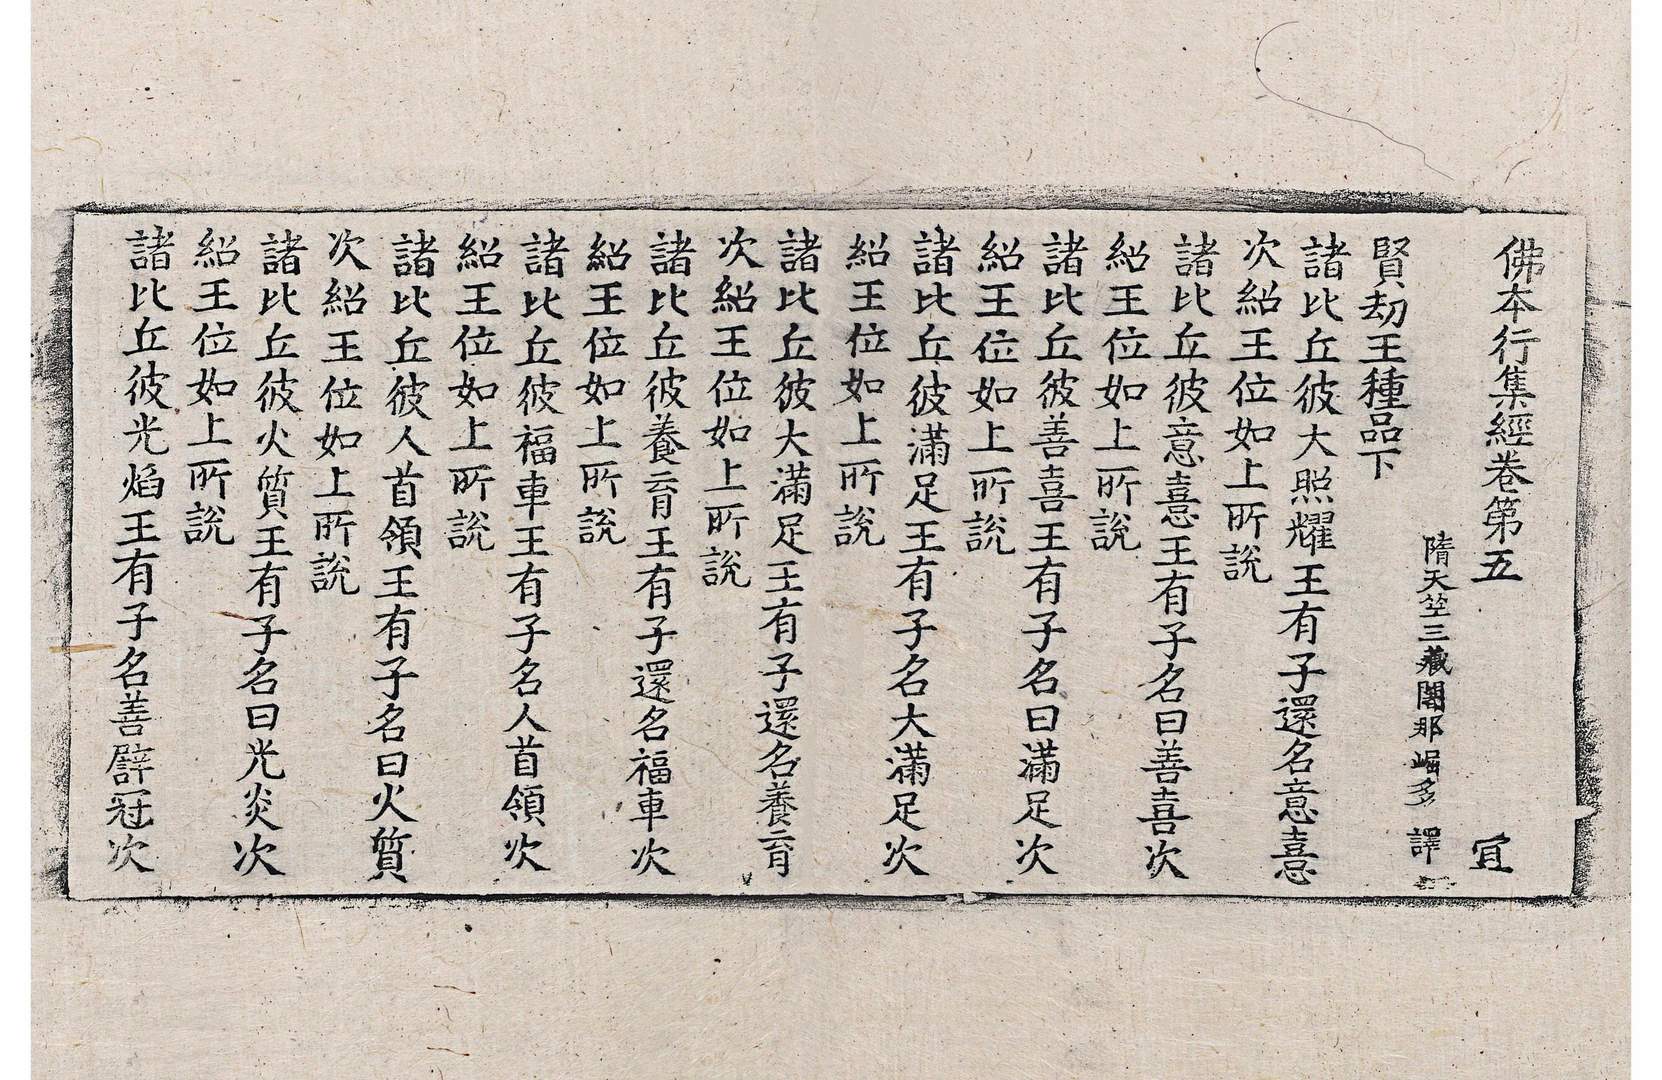 佛本行集經卷第五 宜
隋天竺三藏闍那崛多 譯
賢劫王種品下
諸比丘彼大照耀王有子還名意憙
次紹王位如上所說
諸比丘彼意憙王有子名曰善喜次
紹王位如上所說
諸比丘彼善喜王有子名曰滿足次
紹王位如上所說
諸比丘彼滿足王有子名大滿足次
紹王位如上所說
諸比丘彼大滿足王有子還名養育
次紹王位如上所說
諸比丘彼養育王有子還名福車次
紹王位如上所說
諸比丘彼福車王有子名人首領次
紹王位如上所說
諸比丘彼人首領王有子名曰火質
次紹王位如上所說
諸比丘彼火質王有子名曰光炎次
紹王位如上所說
諸比丘彼光焰王有子名善譬冠次